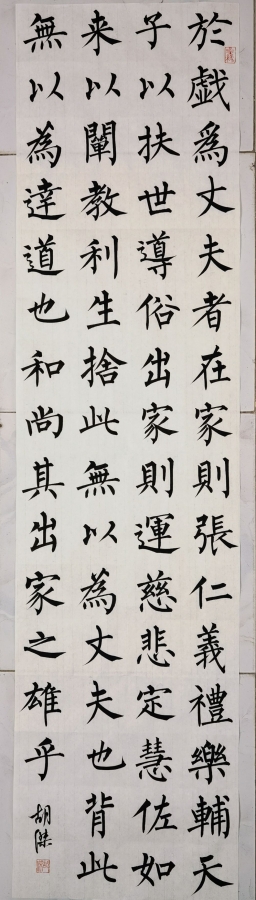 於戲為丈夫者在家則張仁義禮樂輔天
子以扶世導俗出家則運慈悲定慧佐如
来以闡教利生捨此無以為丈夫也背此
無以為達道也和尚其出家之雄乎
胡傑